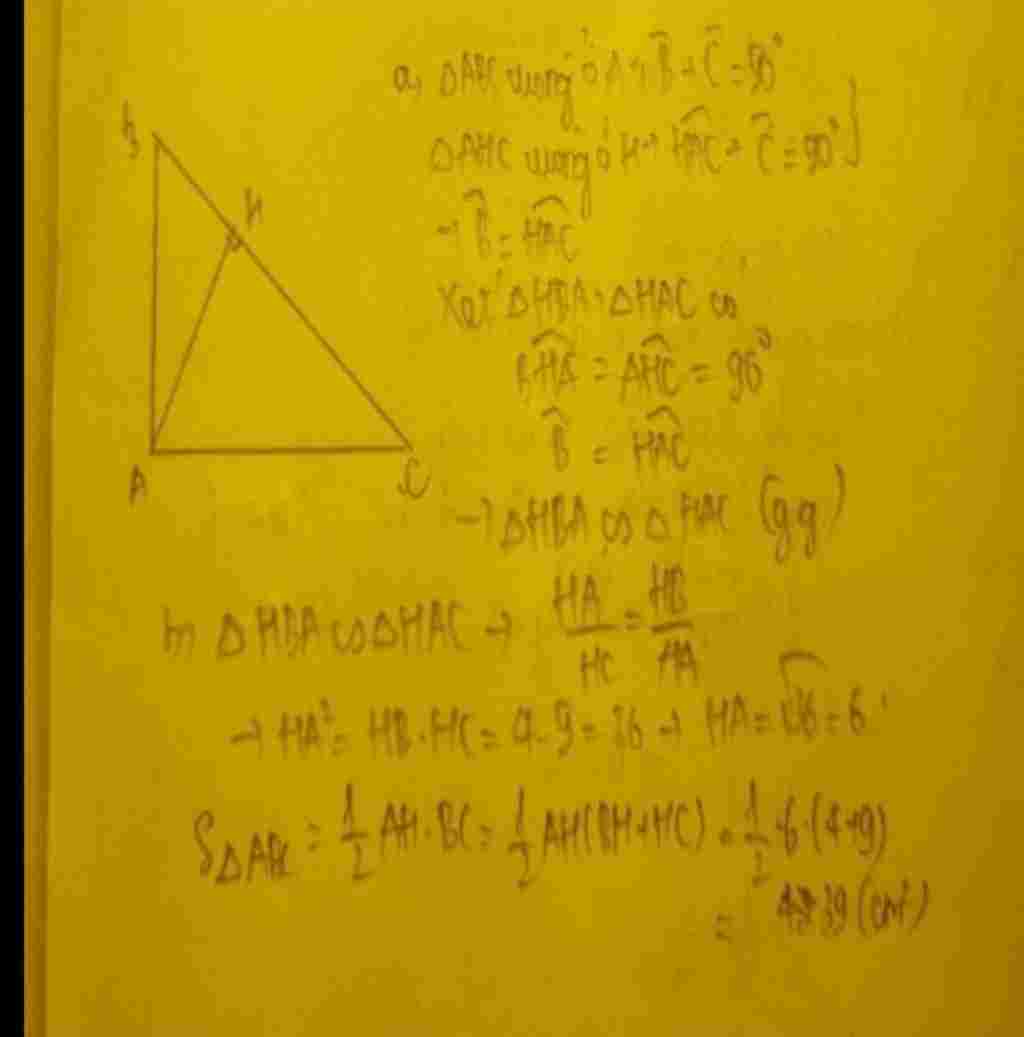 B
H
A
C
a, ΔABC vuông ở A → B̂ + Ĉ = 90°
ΔAHC vuông ở H → HAC + Ĉ = 90° }
→ B̂ = HAC
Xét ΔHBA, ΔHAC có
BHA = AHC = 90°
B̂ = HAC
→ ΔHBA ∽ ΔHAC (g.g)
b, ΔHBA ∽ ΔHAC → HA/HC = HB/HA
→ HA² = HB.HC = 4.9 = 36 → HA = √36 = 6
S△ABC = 1/2 AH.BC = 1/2 AH(BH+HC) = 1/2 .6.(4+9)
= 39 (cm²)